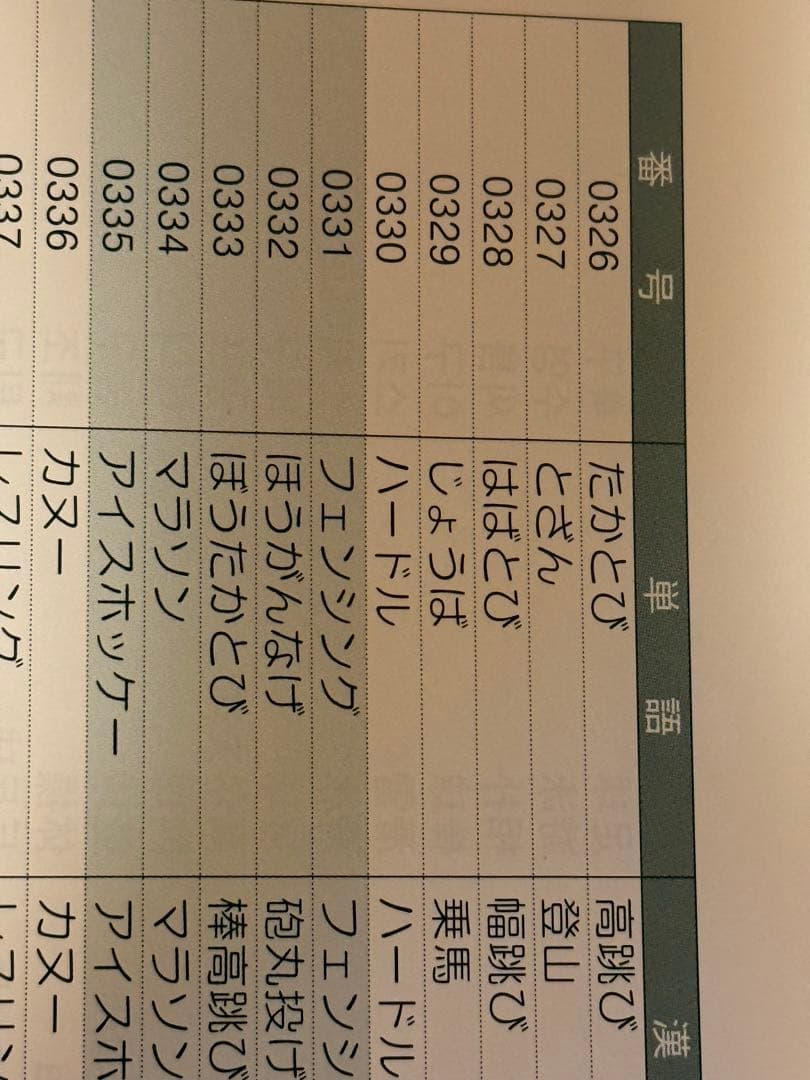 番号 単語 漢
0326 たかとび 高跳び
0327 とざん 登山
0328 はばとび 幅跳び
0329 じょうば 乗馬
0330 ハードル ハードル
0331 フェンシング フェンシ
0332 ほうがんなげ 砲丸投げ
0333 ぼうたかとび 棒高跳び
0334 マラソン マラソン
0335 アイスホッケー アイスホ
0336 カヌー カヌー
0337